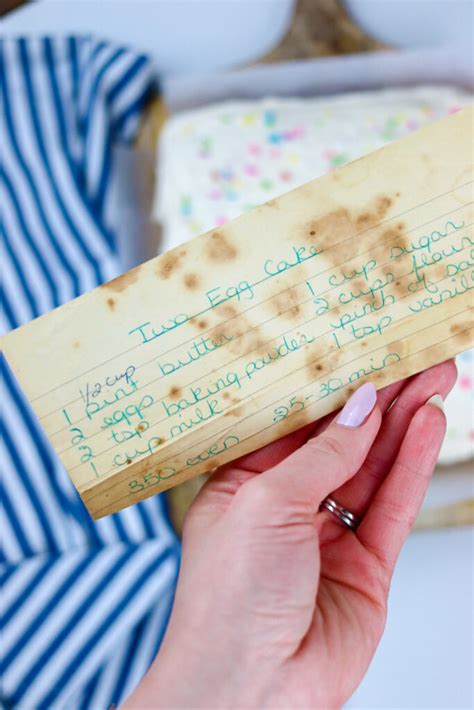 Two Egg Cake
1/2 cup
1 pint butter 1 cup sugar
2 eggs 2 cups flour
2 tsp baking powder pinch of
1 cup milk 1 tsp
350 oven 25-30 min